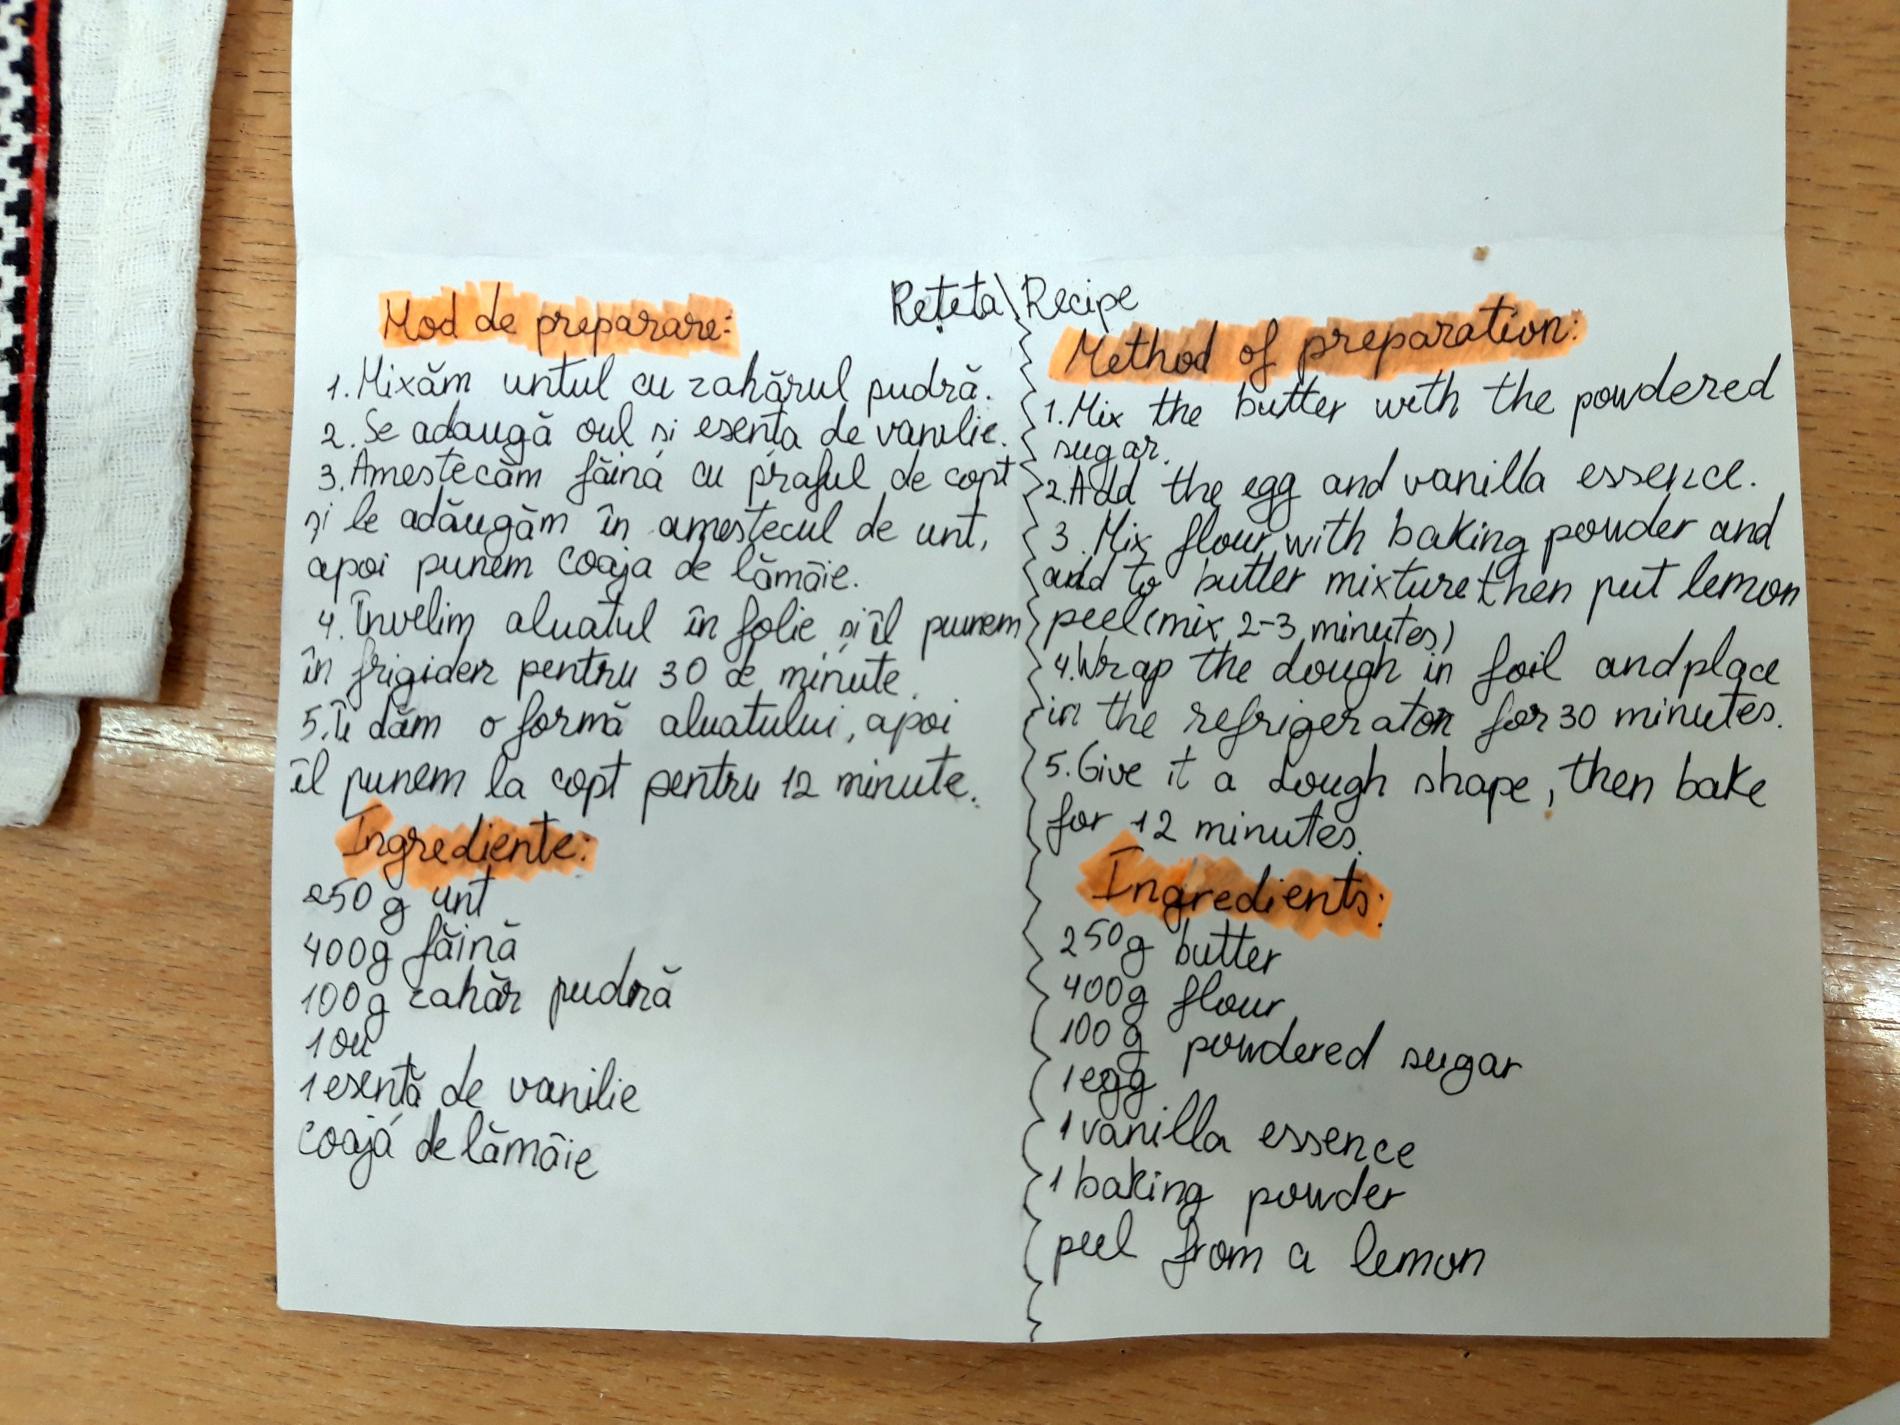 Rețeta\Recipe
Mod de preparare:
1. Mixăm untul cu zahărul pudră.
2. Se adaugă oul și esența de vanilie.
3. Amestecăm făina cu praful de copt
și le adăugăm în amestecul de unt,
apoi punem coaja de lămâie.
4. Învelim aluatul în folie și îl punem
în frigider pentru 30 de minute.
5. Îi dăm o formă aluatului, apoi
îl punem la copt pentru 12 minute.
Ingrediente:
250 g unt
400g făină
100g zahăr pudră
1 ou
1 esență de vanilie
coajă de lămâie
Method of preparation:
1. Mix the butter with the powdered
sugar.
2. Add the egg and vanilla essence.
3. Mix flour with baking powder and
add to butter mixture then put lemon
peel (mix 2-3 minutes)
4. Wrap the dough in foil and place
in the refrigerator for 30 minutes.
5. Give it a dough shape, then bake
for 12 minutes.
Ingredients:
250g butter
400g flour
100 g powdered sugar
1 egg
1 vanilla essence
1 baking powder
peel from a lemon